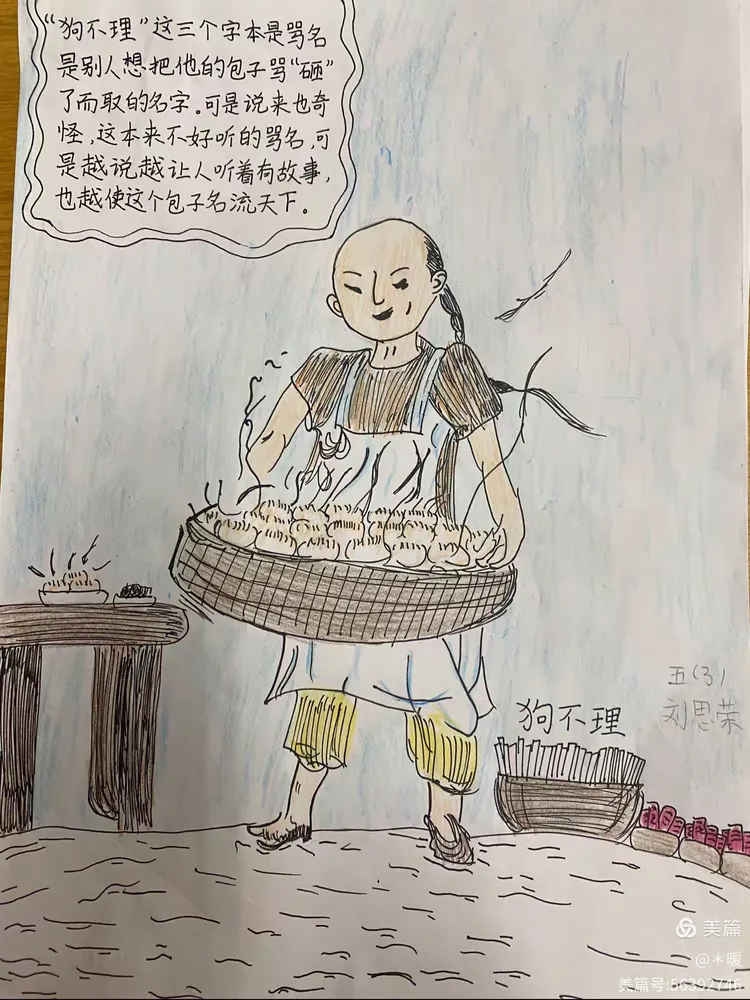 “狗不理”这三个字本是骂名
是别人想把他的包子骂“砸”
了而取的名字。可是说来也奇
怪,这本来不好听的骂名,可
是越说越让人听着有故事,
也越使这个包子名流天下。
狗不理
五(3)
刘思荣
美篇
@木暖
美篇号:56392746